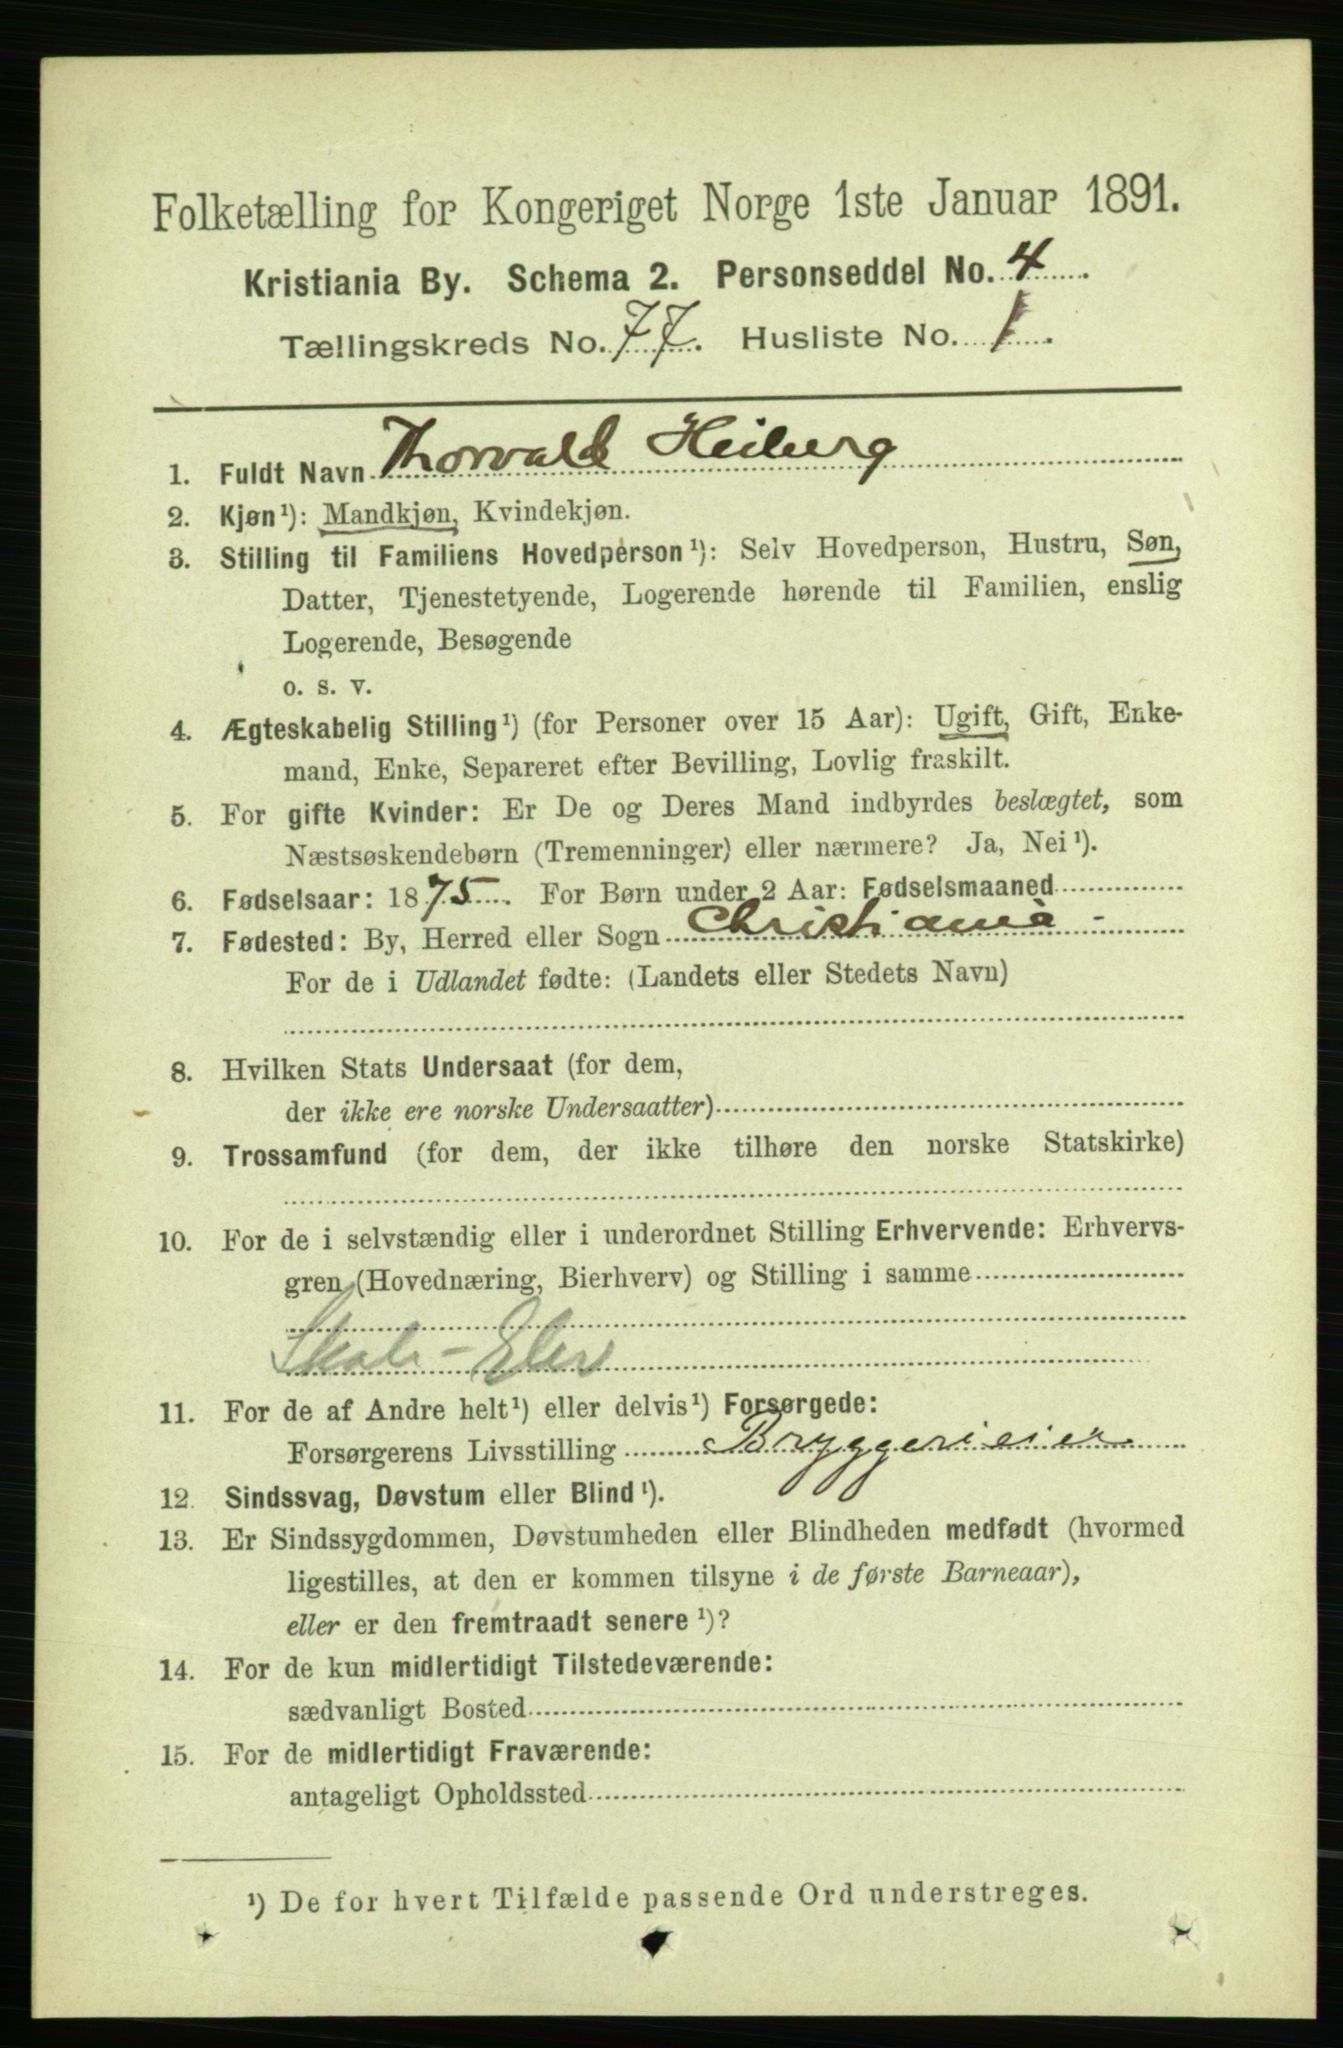 Folketælling for Kongeriget Norge 1ste Januar 1891.
Kristiania By. Schema 2. Personseddel No. 4.
Tællingskreds No. 77. Husliste No. 1.
1. Fuldt Navn Thorvald Heiberg
2. Kjøn¹): Mandkjøn, Kvindekjøn.
3. Stilling til Familiens Hovedperson¹): Selv Hovedperson, Hustru, Søn,
Datter, Tjenestetyende, Logerende hørende til Familien, enslig
Logerende, Besøgende
o. s. v.
4. Ægteskabelig Stilling¹) (for Personer over 15 Aar): Ugift, Gift, Enke-
mand, Enke, Separeret efter Bevilling, Lovlig fraskilt.
5. For gifte Kvinder: Er De og Deres Mand indbyrdes beslægtet, som
Næstsøskendebørn (Tremenninger) eller nærmere? Ja, Nei¹).
6. Fødselsaar: 1875. For Børn under 2 Aar: Fødselsmaaned
7. Fødested: By, Herred eller Sogn Christiania -
For de i Udlandet fødte: (Landets eller Stedets Navn)
8. Hvilken Stats Undersaat (for dem,
der ikke ere norske Undersaatter)
9. Trossamfund (for dem, der ikke tilhøre den norske Statskirke)
10. For de i selvstændig eller i underordnet Stilling Erhvervende: Erhvervs-
gren (Hovednæring, Bierhverv) og Stilling i samme
Skole-Elev
11. For de af Andre helt¹) eller delvis¹) Forsørgede:
Forsørgerens Livsstilling Bryggerieier
12. Sindssvag, Døvstum eller Blind¹).
13. Er Sindssygdommen, Døvstumheden eller Blindheden medfødt (hvormed
ligestilles, at den er kommen tilsyne i de første Barneaar),
eller er den fremtraadt senere¹)?
14. For de kun midlertidigt Tilstedeværende:
sædvanligt Bosted
15. For de midlertidigt Fraværende:
antageligt Opholdssted
¹) De for hvert Tilfælde passende Ord understreges.